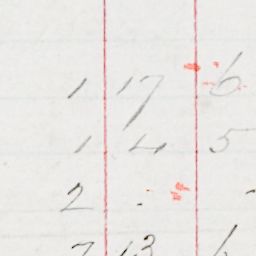 1 17 6
1 4 5
2 . -
7 13 6